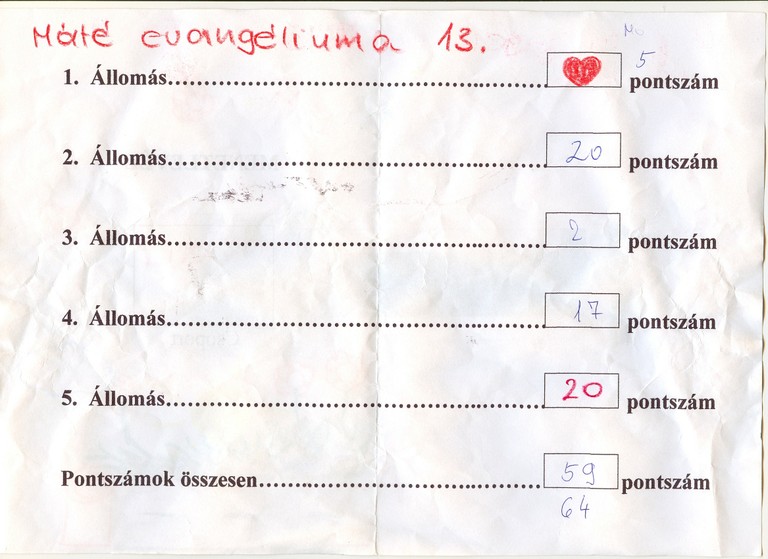 Máté evangéliuma 13.
5
1. Állomás.......................................................... pontszám
2. Állomás.......................................................... 20 pontszám
3. Állomás.......................................................... 2 pontszám
4. Állomás.......................................................... 17 pontszám
5. Állomás.......................................................... 20 pontszám
Pontszámok összesen.......................................... 59 pontszám
64